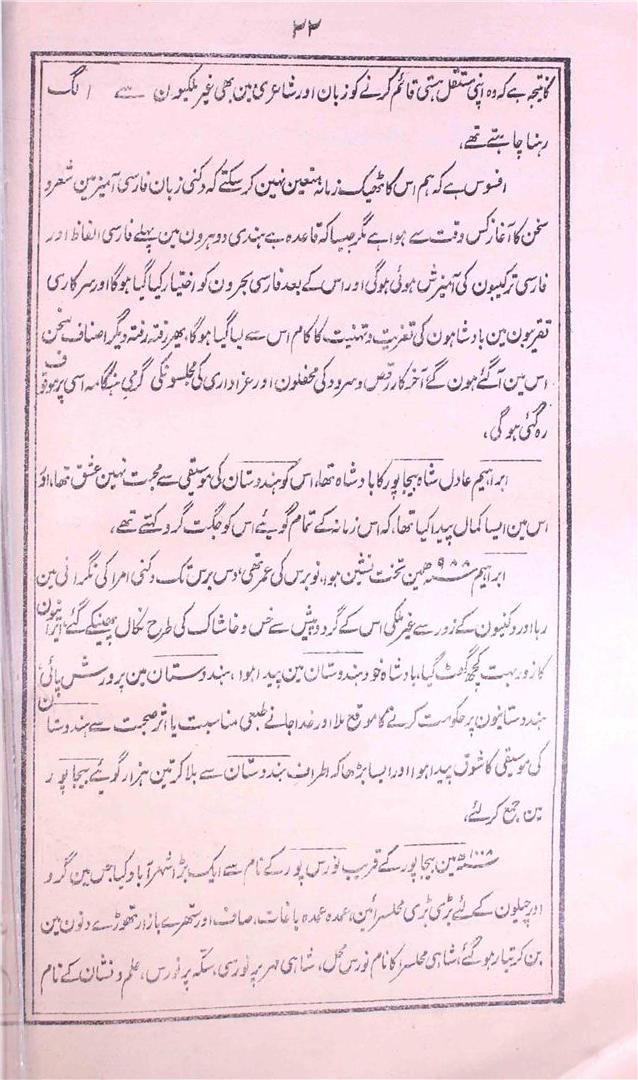 ۳۳
کا نتیجہ ہے کہ وہ اپنی مستقل ہستی قائم کرنے کو زبان اور شاعری مین بھی غیر ملکیون سے الگ
رہنا چاہتے تھے،
افسوس ہے کہ ہم اس کا ٹھیک زمانہ متعین نہین کر سکتے کہ دکنی زبان فارسی آمیز مین شعر و
سخن کا آغاز کس وقت سے ہوا ہے مگر جیسا کہ قاعدہ ہے ہندی دوہرون مین پہلے فارسی الفاظ اور
فارسی ترکیبون کی آمیزش ہوئی ہوگی اور اس کے بعد فارسی بحرون کو اختیار کیا گیا ہوگا اور سرکاری
تقریبون مین بادشاہون کی تعزیت و تہنیت کا کام اس سے لیا گیا ہوگا، پھر رفتہ رفتہ دیگر اصناف سخن
اس مین آگئے ہون گے آخر کار رقص و سرود کی محفلون اور عزاداری کی مجلسونکی گرمیِ ہنگامہ اسی پر موقوف
رہ گئی ہوگی،
ابراہیم عادل شاہ بیجاپور کا بادشاہ تھا، اس کو ہندوستان کی موسیقی سے محبت نہین عشق تھا، اور
اس مین ایسا کمال پیدا کیا تھا، کہ اس زمانہ کے تمام گویئے اس کو جگت گرو کہتے تھے،
ابراہیم ۹۸۸ھ مین تخت نشین ہوا، نو برس کی عمر تھی، دس برس تک دکنی امرا کی نگرانی مین
رہا اور دکنیون کے زور سے غیر ملکی اس کے گرد و پیش سے خس و خاشاک کی طرح نکال پھینکے گئے، ایرانیون
کا زور بہت کچھ گھٹ گیا، بادشاہ خود ہندوستان مین پیدا ہوا، ہندوستان مین پرورش پائی،
ہندوستانیون پر حکومت کرنے کا موقع ملا اور خدا جانے طبعی مناسبت یا اثر صحبت سے ہندوستان
کی موسیقی کا شوق پیدا ہوا اور ایسا بڑھا کہ اطراف ہندوستان سے بلا کر تین ہزار گویئے بیجاپور
مین جمع کر لئے،
۱۰۰۸ھ مین بیجاپور کے قریب نورس پور کے نام سے ایک بڑا شہر آباد کیا، جس مین گرو
اور چیلون کے لئے بڑی بڑی محلسرائین، عمدہ عمدہ باغات، صاف اور ستھرے بازار تھوڑے دنون مین
بن کر تیار ہو گئے، شاہی محلسرا کا نام نورس محل، شاہی مہر پر نورسی، سکہ پر نورس، علم و نشان کے نام